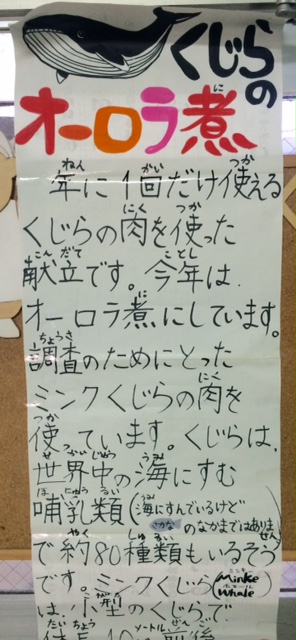 くじらの
オーロラ煮
年に1回だけ使える
くじらの肉を使った
献立です。今年は、
オーロラ煮にしています。
調査のためにとった
ミンクくじらの肉を
使っています。くじらは、
世界中の海にすむ
哺乳類(海にすんでいるけど
さかなのなかまではありません)
で約80種類もいるそう
です。ミンクくじら(ミンキー Minke ホエール Whale)
は、小型のくじらで